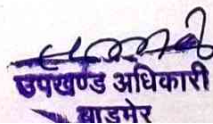 उपखण्ड अधिकारी
बाड़मेर